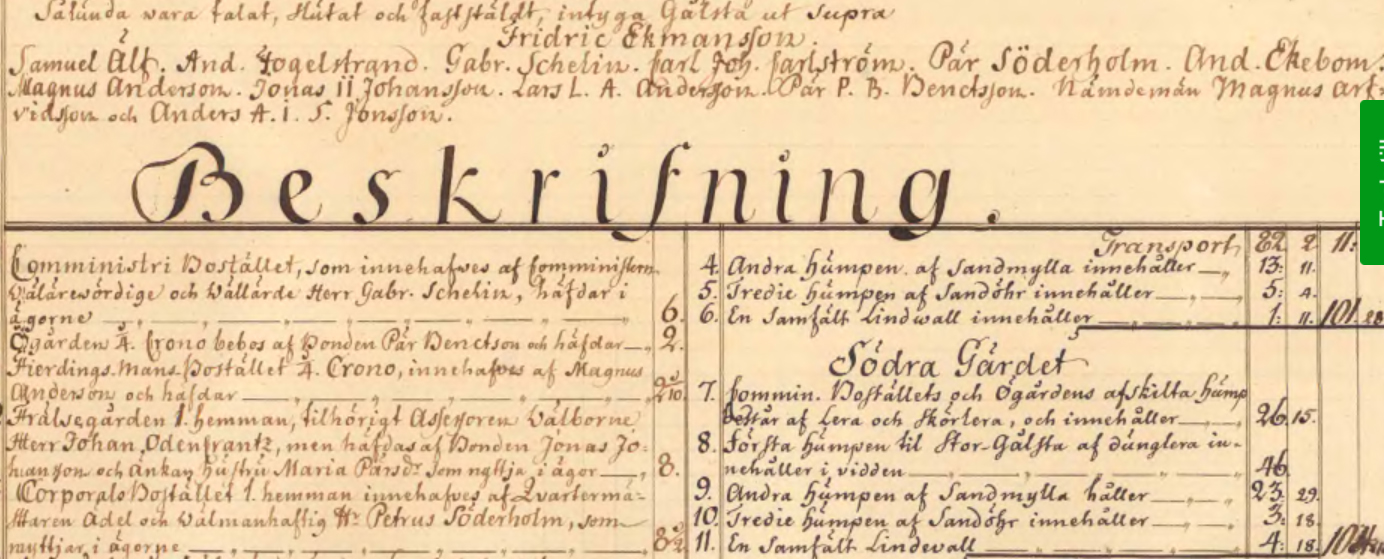 Sålunda vara talat, slutat och fastställdt, intyga Gälsta ut supra
Fridric Ekmansson.
Samuel Alt. And. Fogelstrand. Gabr. Schelin. Carl Joh. Carlström. Pär Söderholm. And. Ekebom.
Magnus Anderson. Jonas II Johansson. Lars L. A. Anderson. Pär P. B. Benctsson. Nämdemän Magnus Arf-
vidsson och Anders A. I. S. Jonsson.
Beskrifning.
Comministri Bostället, som innehafves af Comministern
Wälärewördige och Wällärde Herr Gabr. Schelin, häfdar i
ägorne 6.
Ögården 4. Crono bebos af Bonden Pär Benctson och häfdar 2.
Fierdings.mans.Bostället 4. Crono, innehafves af Magnus
Anderson och häfdar
Frälsegården 1. hemman, tilhörigt Assessoren Wälborne
Herr Johan Odenfrantz, men häfdas af Bonden Jonas Jo-
hansson och Ankan Hustru Maria Pärsdr. som nyttja i ägor 8.
Corporals Bostället 1. hemman innehafves af Qvartermä-
staren Adel och Wälmanhaftig Hr Petrus Söderholm, som
nyttjar i ägorne
Transport 82 2 11:
4. Andra hümpen af Sandmylla innehåller 13: 11.
5. Tredie hümpen af Sandöhr innehåller 5: 4.
6. En Samfält Lindwall innehåller 1: 11. 101 28
Södra Gärdet
7. Commin. Boställets och Ögårdens afskilta hümp
består af Lera och Skörlera, och innehåller 26. 15.
8. Första hümpen til Stor-Gälsta af dünglera in-
nehåller i vidden 46
9. Andra hümpen af Sandmylla håller 23: 29.
10. Tredie hümpen af Sandöhr innehåller 3: 18.
11. En Samfält Lindevall 4: 18.